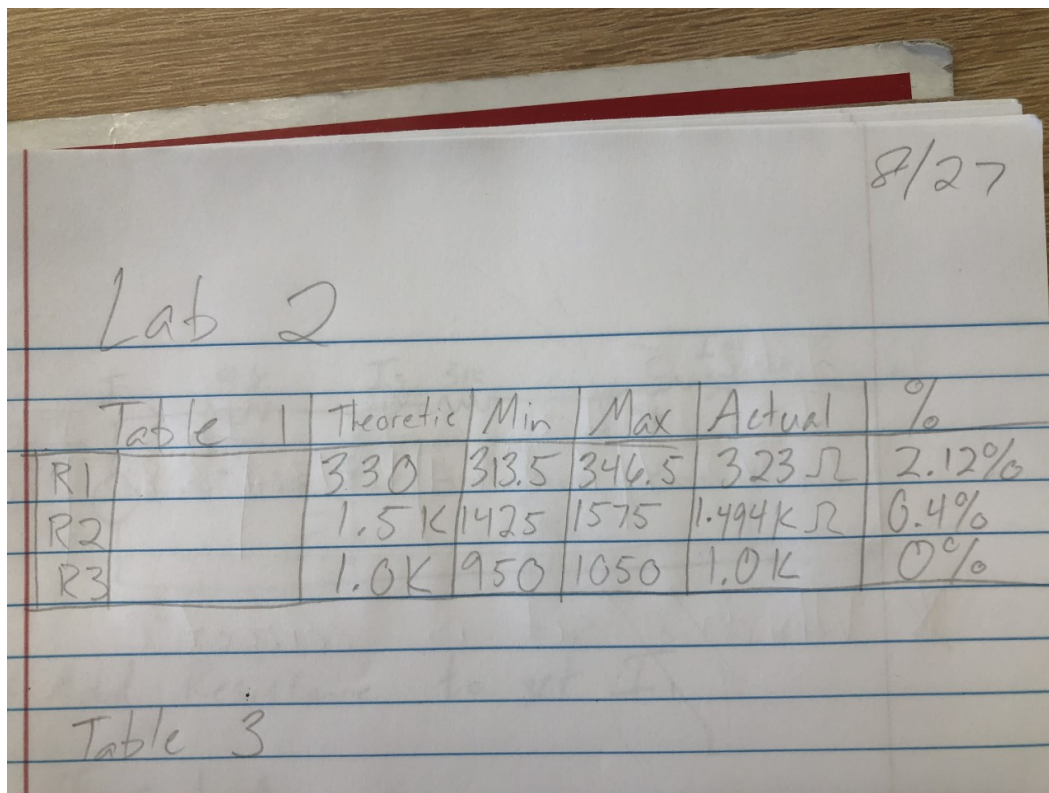 8/27
Lab 2
Table 1 Theoretic Min Max Actual %
R1 330 313.5 346.5 323 Ω 2.12%
R2 1.5K 1425 1575 1.494K Ω 0.4%
R3 1.0K 950 1050 1.0K 0%
Table 3